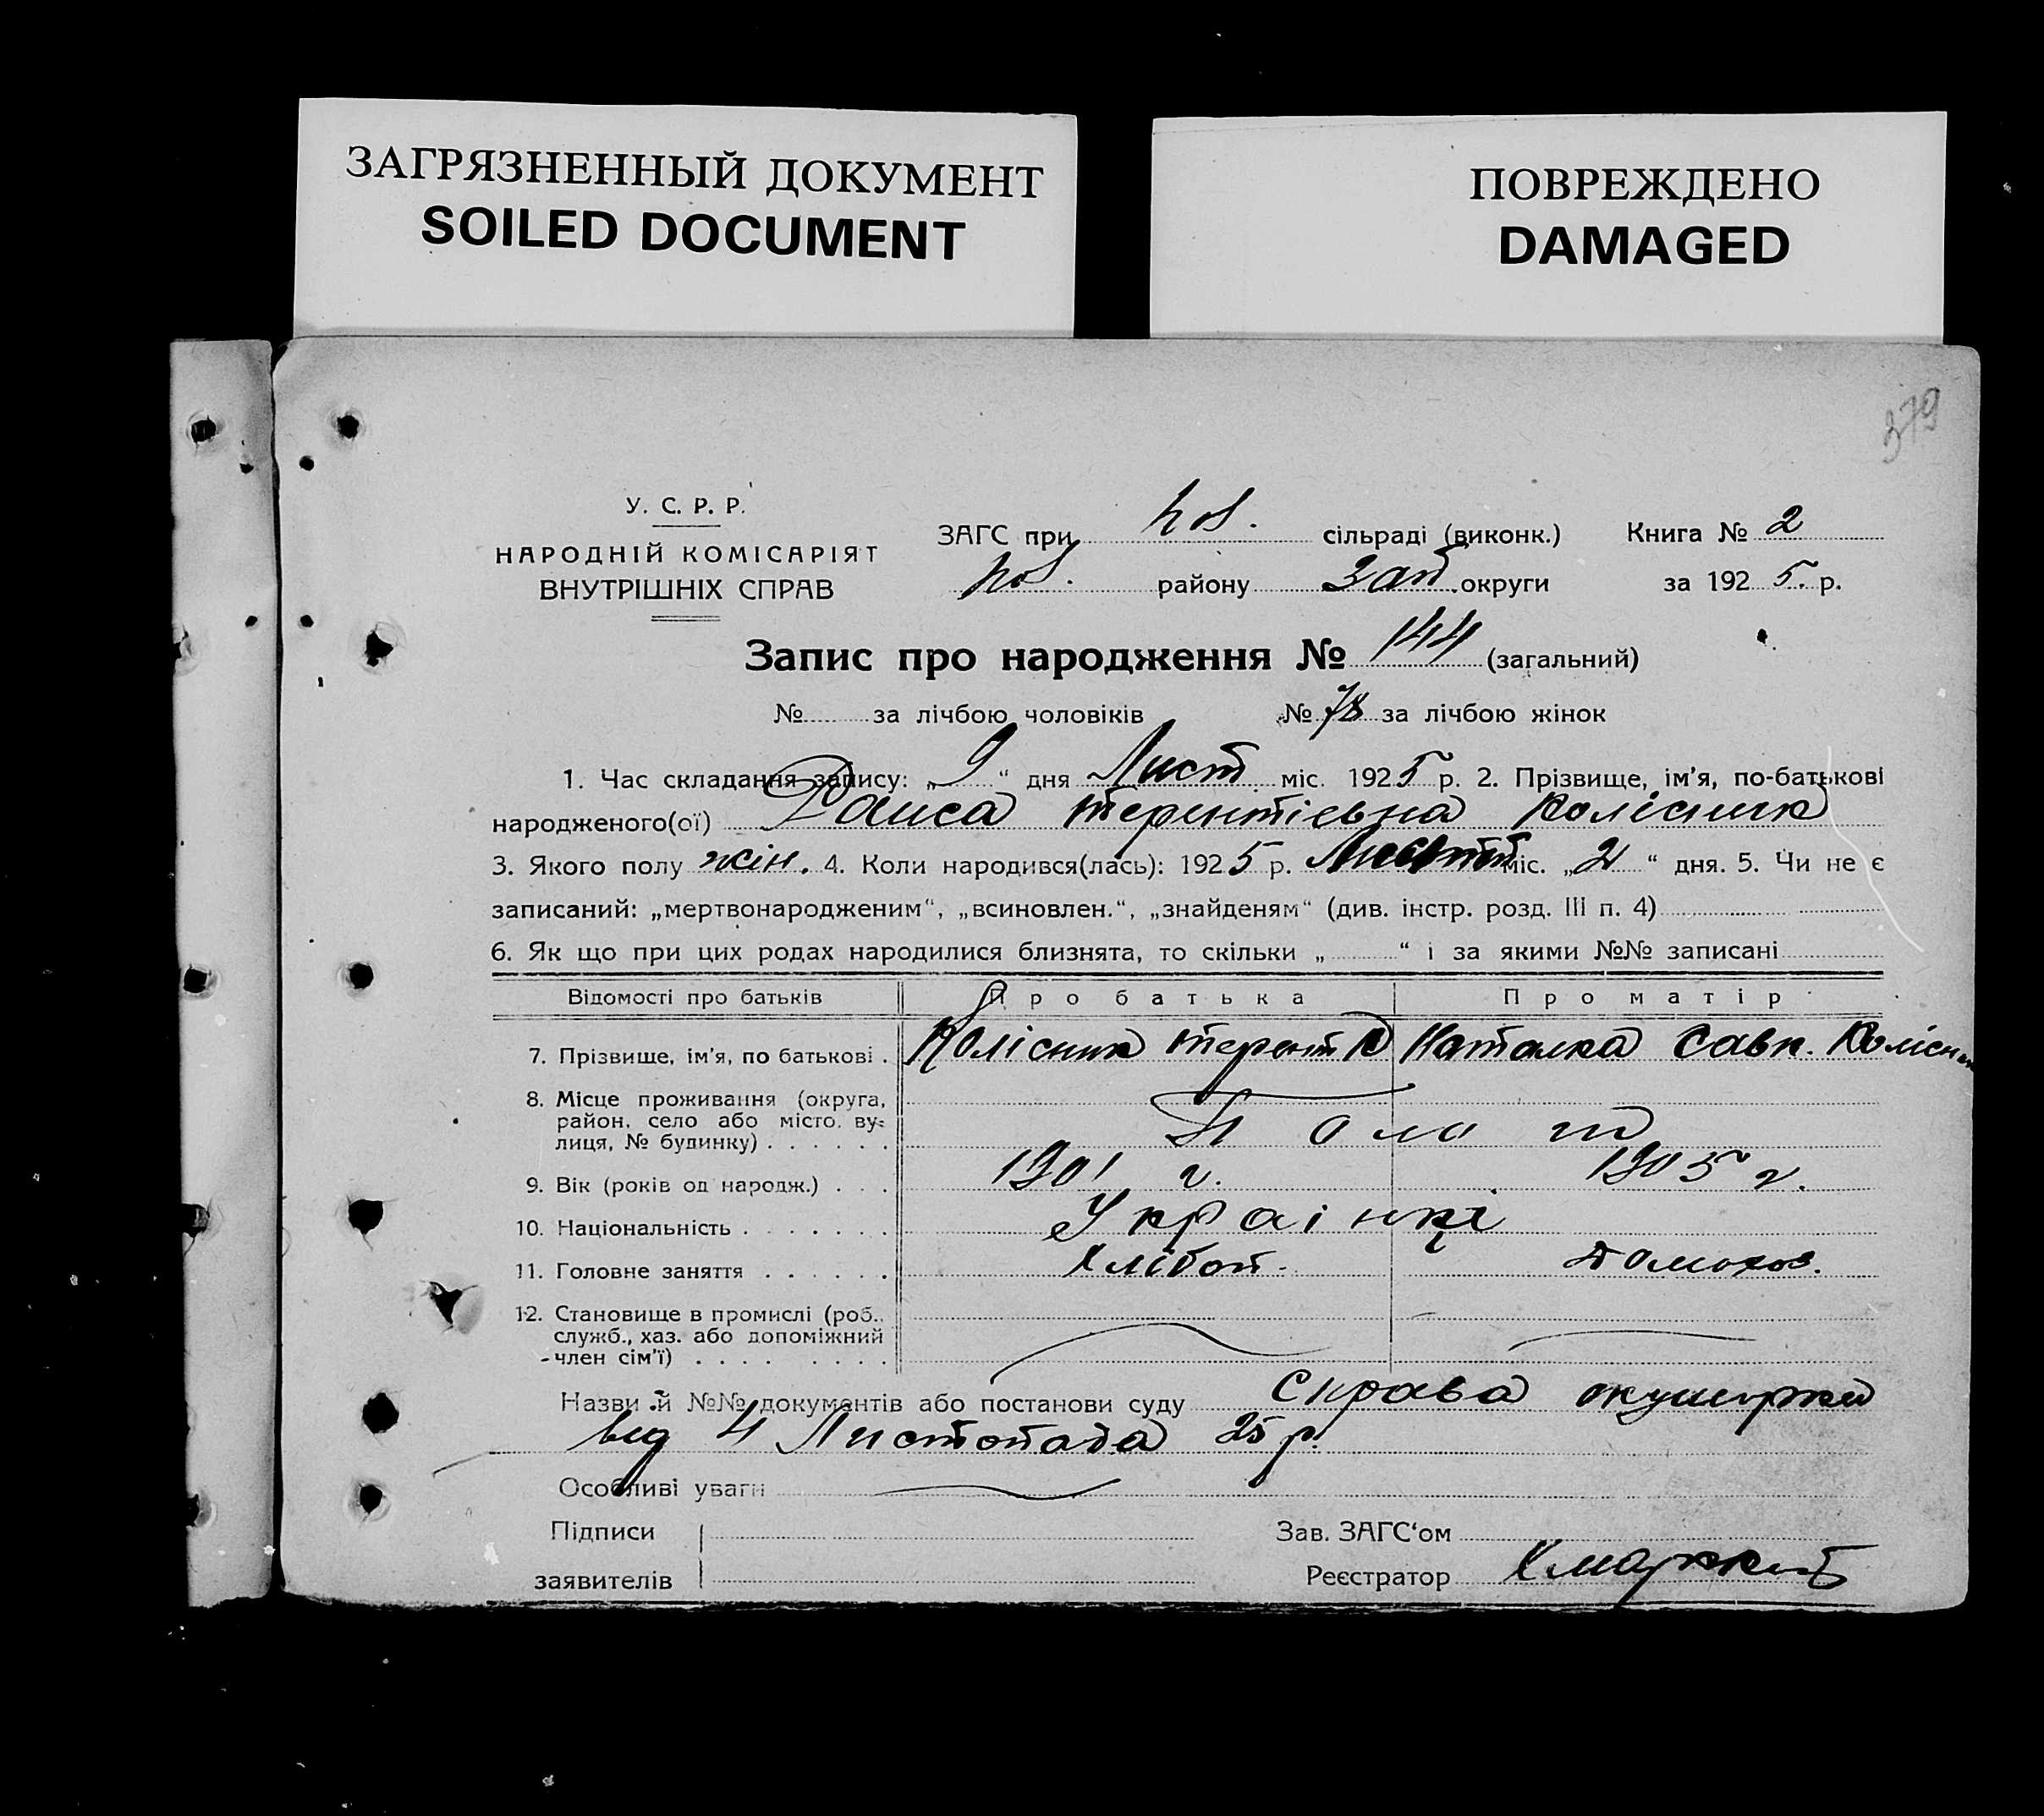 ЗАГРЯЗНЕННЫЙ ДОКУМЕНТ
SOILED DOCUMENT
ПОВРЕЖДЕНО
DAMAGED
379
У. С. Р. Р.
НАРОДНІЙ КОМІСАРІЯТ
ВНУТРІШНІХ СПРАВ
ЗАГС при сільраді (виконк.) Книга № 2
району Зап. округи за 1925 р.
Запис про народження № 144 (загальний)
№ за лічбою чоловіків № 78 за лічбою жінок
1. Час складання запису: „9“ дня Лист міс. 1925 р. 2. Прізвище, ім'я, по-батькові
народженого(ої) Раиса Терентієвна Колісник
3. Якого полу жін. 4. Коли народився(лась): 1925 р. Лист міс. „2“ дня. 5. Чи не є
записаний: „мертвонародженим“, „всиновлен.“, „знайденям“ (див. інстр. розд. III п. 4)
6. Як що при цих родах народилися близнята, то скільки „ “ і за якими №№ записані
Відомості про батьків Про батька Про матір
7. Прізвище, ім'я, по батькові . Колісник Терент К Наталка Савк. Колісн
8. Місце проживання (округа,
район, село або місто, ву-
лиця, № будинку) . . . . . .
9. Вік (років од народж.) . . . 1901 г. 1905 г.
10. Національність . . . . . . . Українці
11. Головне заняття . . . . . . Хлібоп. Домохоз.
12. Становище в промислі (роб.,
служб., хаз. або допоміжний
член сім'ї) . . . . . . . .
Назви й №№ документів або постанови суду Справа окушерки
від 4 Листопада 25 р.
Особливі уваги
Підписи Зав. ЗАГС'ом
заявителів Реєстратор